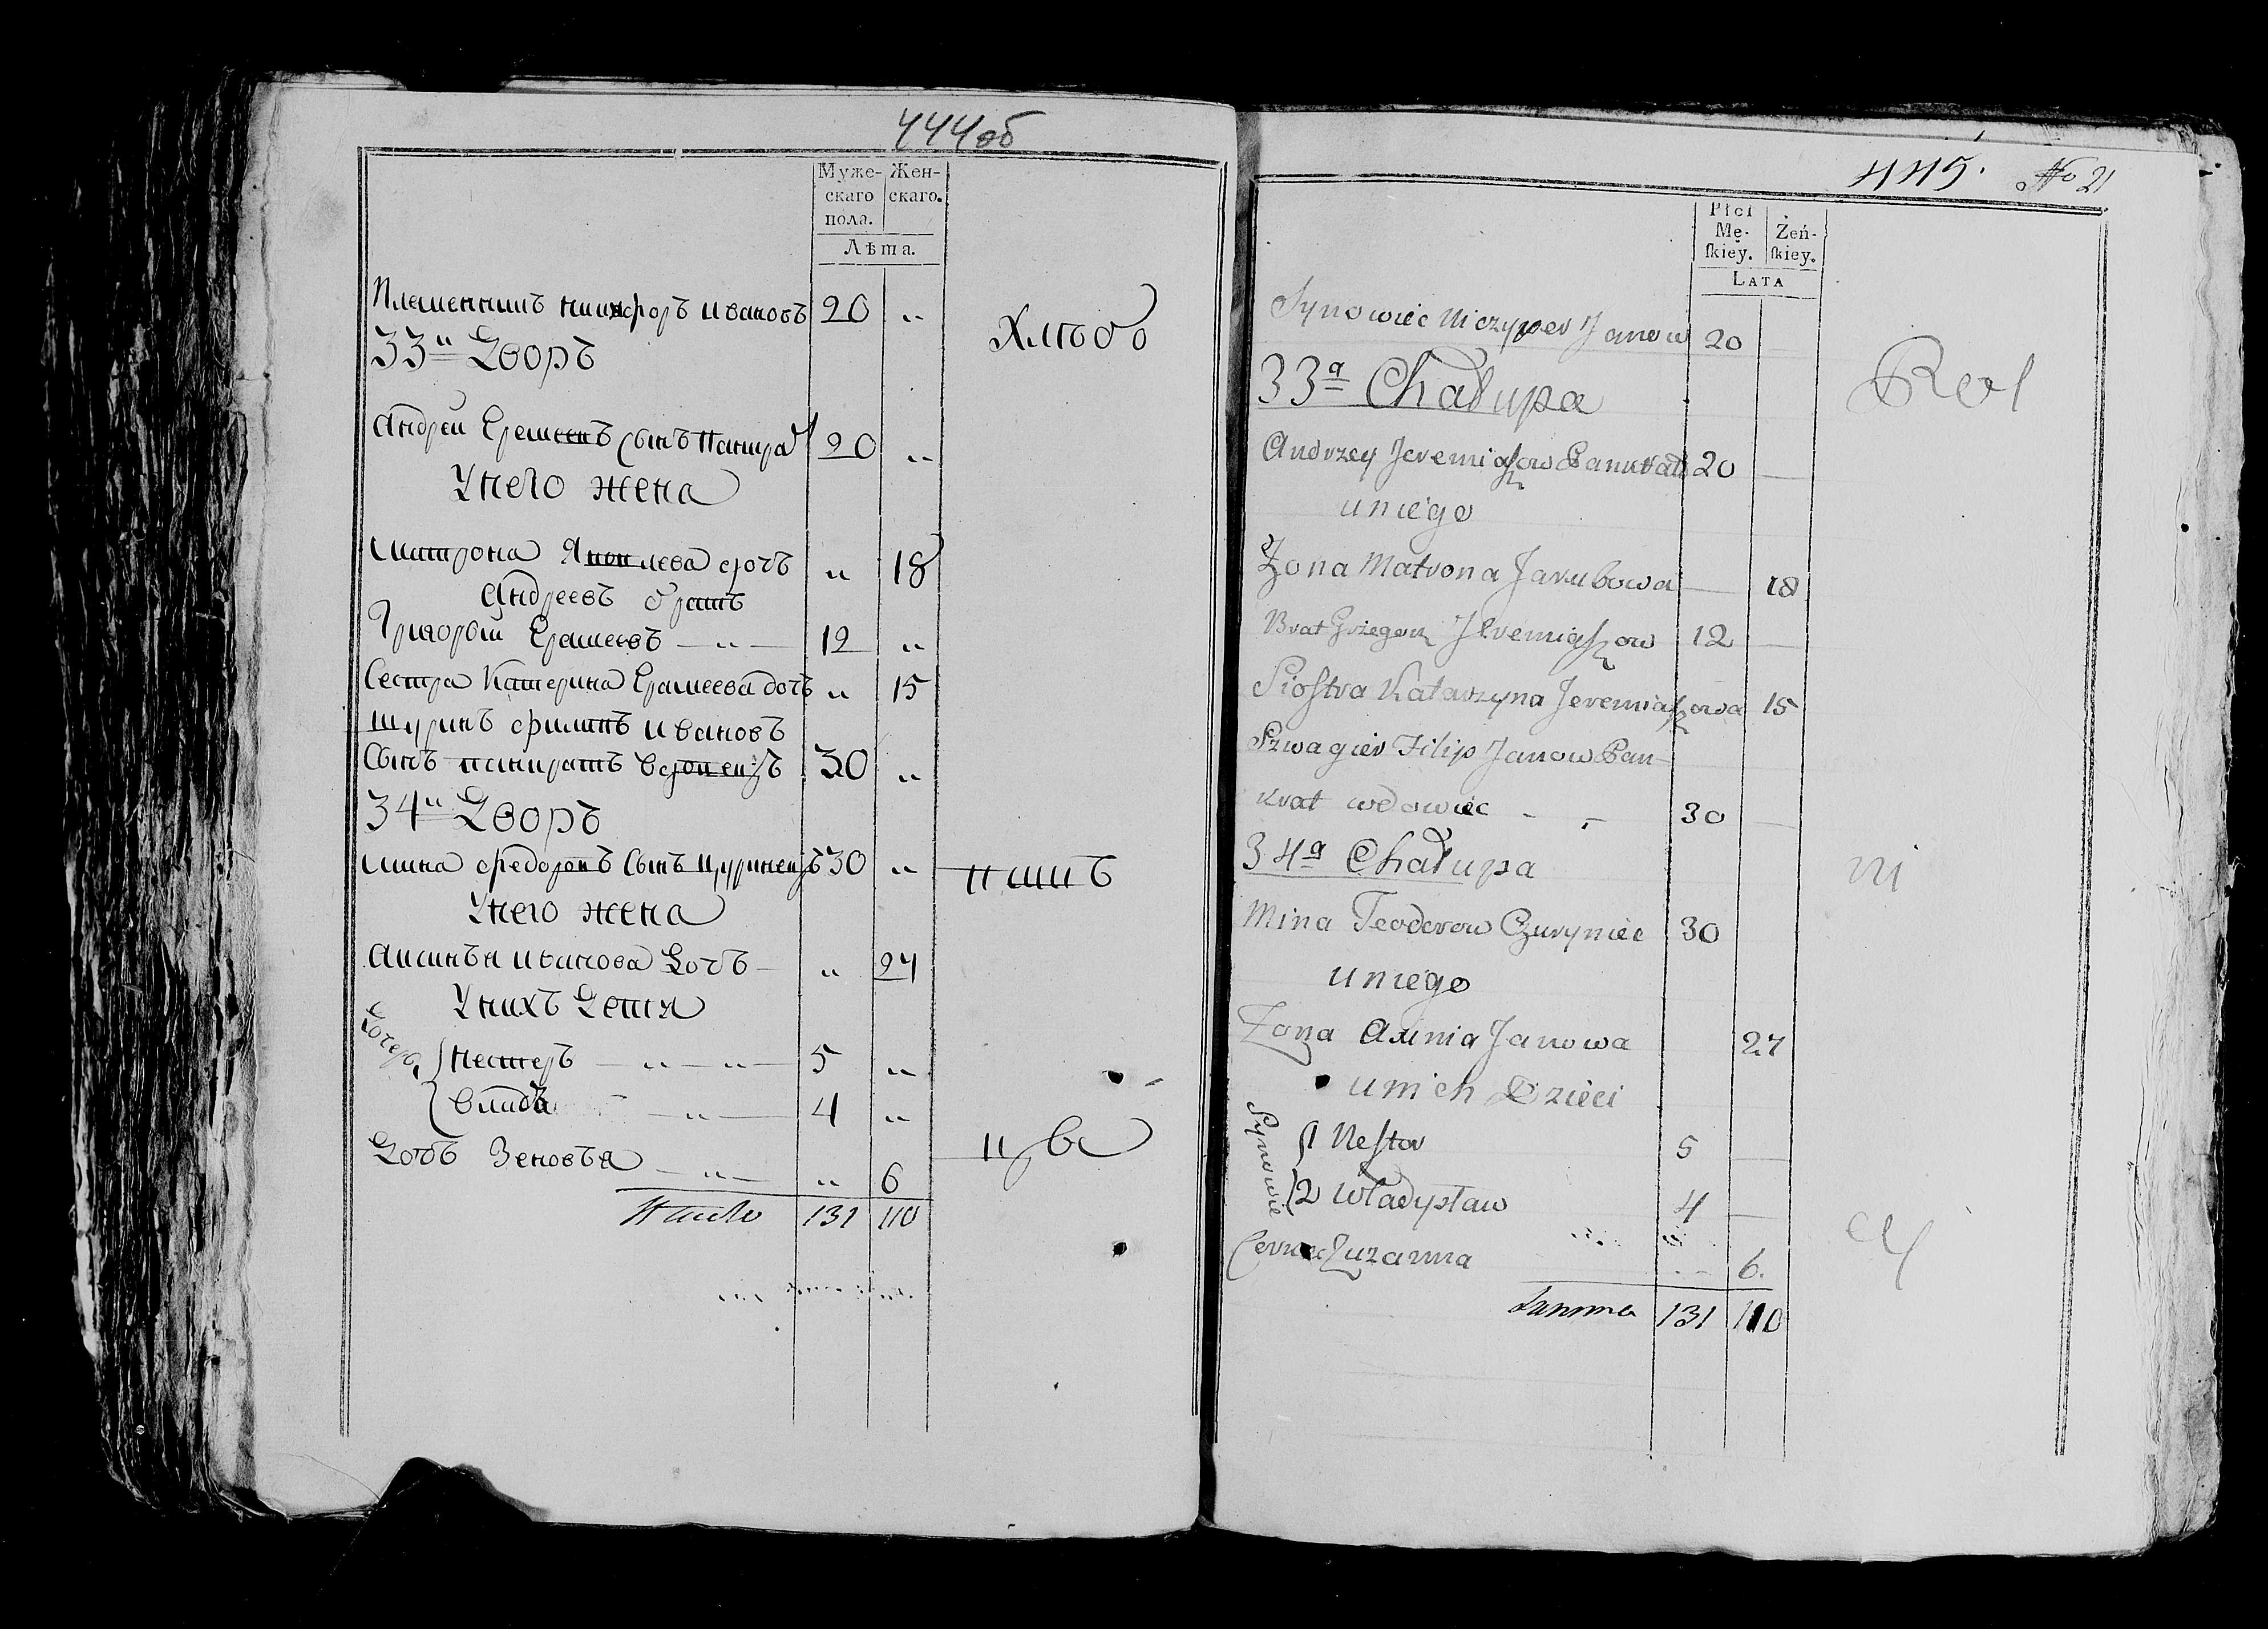 444об
Муже- Жен-
скаго скаго.
пола.
Лѣта.
Племенникъ никифоръ ивановъ 20 „
33й Дворъ
Хлѣбо
Андрей Еремеевъ сынъ Панкра 20 „
Унего жена
Матрона Яковлева дочь „ 18
Андреевъ братъ
Григорий Ерамеевъ — „ — 12 „
Сестра Катерина Ерамеева дочь „ 15
шуринъ филипъ ивановъ
Сынъ панкратъ 30 „
34й Дворъ
мина федоровъ Сынъ Цуринецъ 30 „
пашъ
Унего жена
Аксинья иванова Дочь — „ 27
Унихъ Дети
Нестеръ — „ — „ — 5 „
— „ — 4 „
Дочь Зеновья — „ — „ 6
131 110
445. No 21
Płci
Mę- Żeń-
ſkiey. ſkiey.
LATA
Synowiec Niczyper Janow 20 —
33a Chałupa
Rol
Andrzey Jeremiaſzow Pankrat 20 —
uniego
Żona Matrona Jakubowa — 18
Brat Grzegorz Jeremiaſzow 12 —
Siostra Katarzyna Jeremiaſzowa 15
Szwagier Filip Janow Pan-
krat wdowiec - - 30 —
34a Chałupa
ni
Mina Teodorow Czuryniec 30
uniego
Żona Axinia Janowa 27
unich Dzieci
Synowie
1 Nestor 5 —
2 Władysław 4 —
cy
Corka Zuzanna - - 6.
Summa 131 110